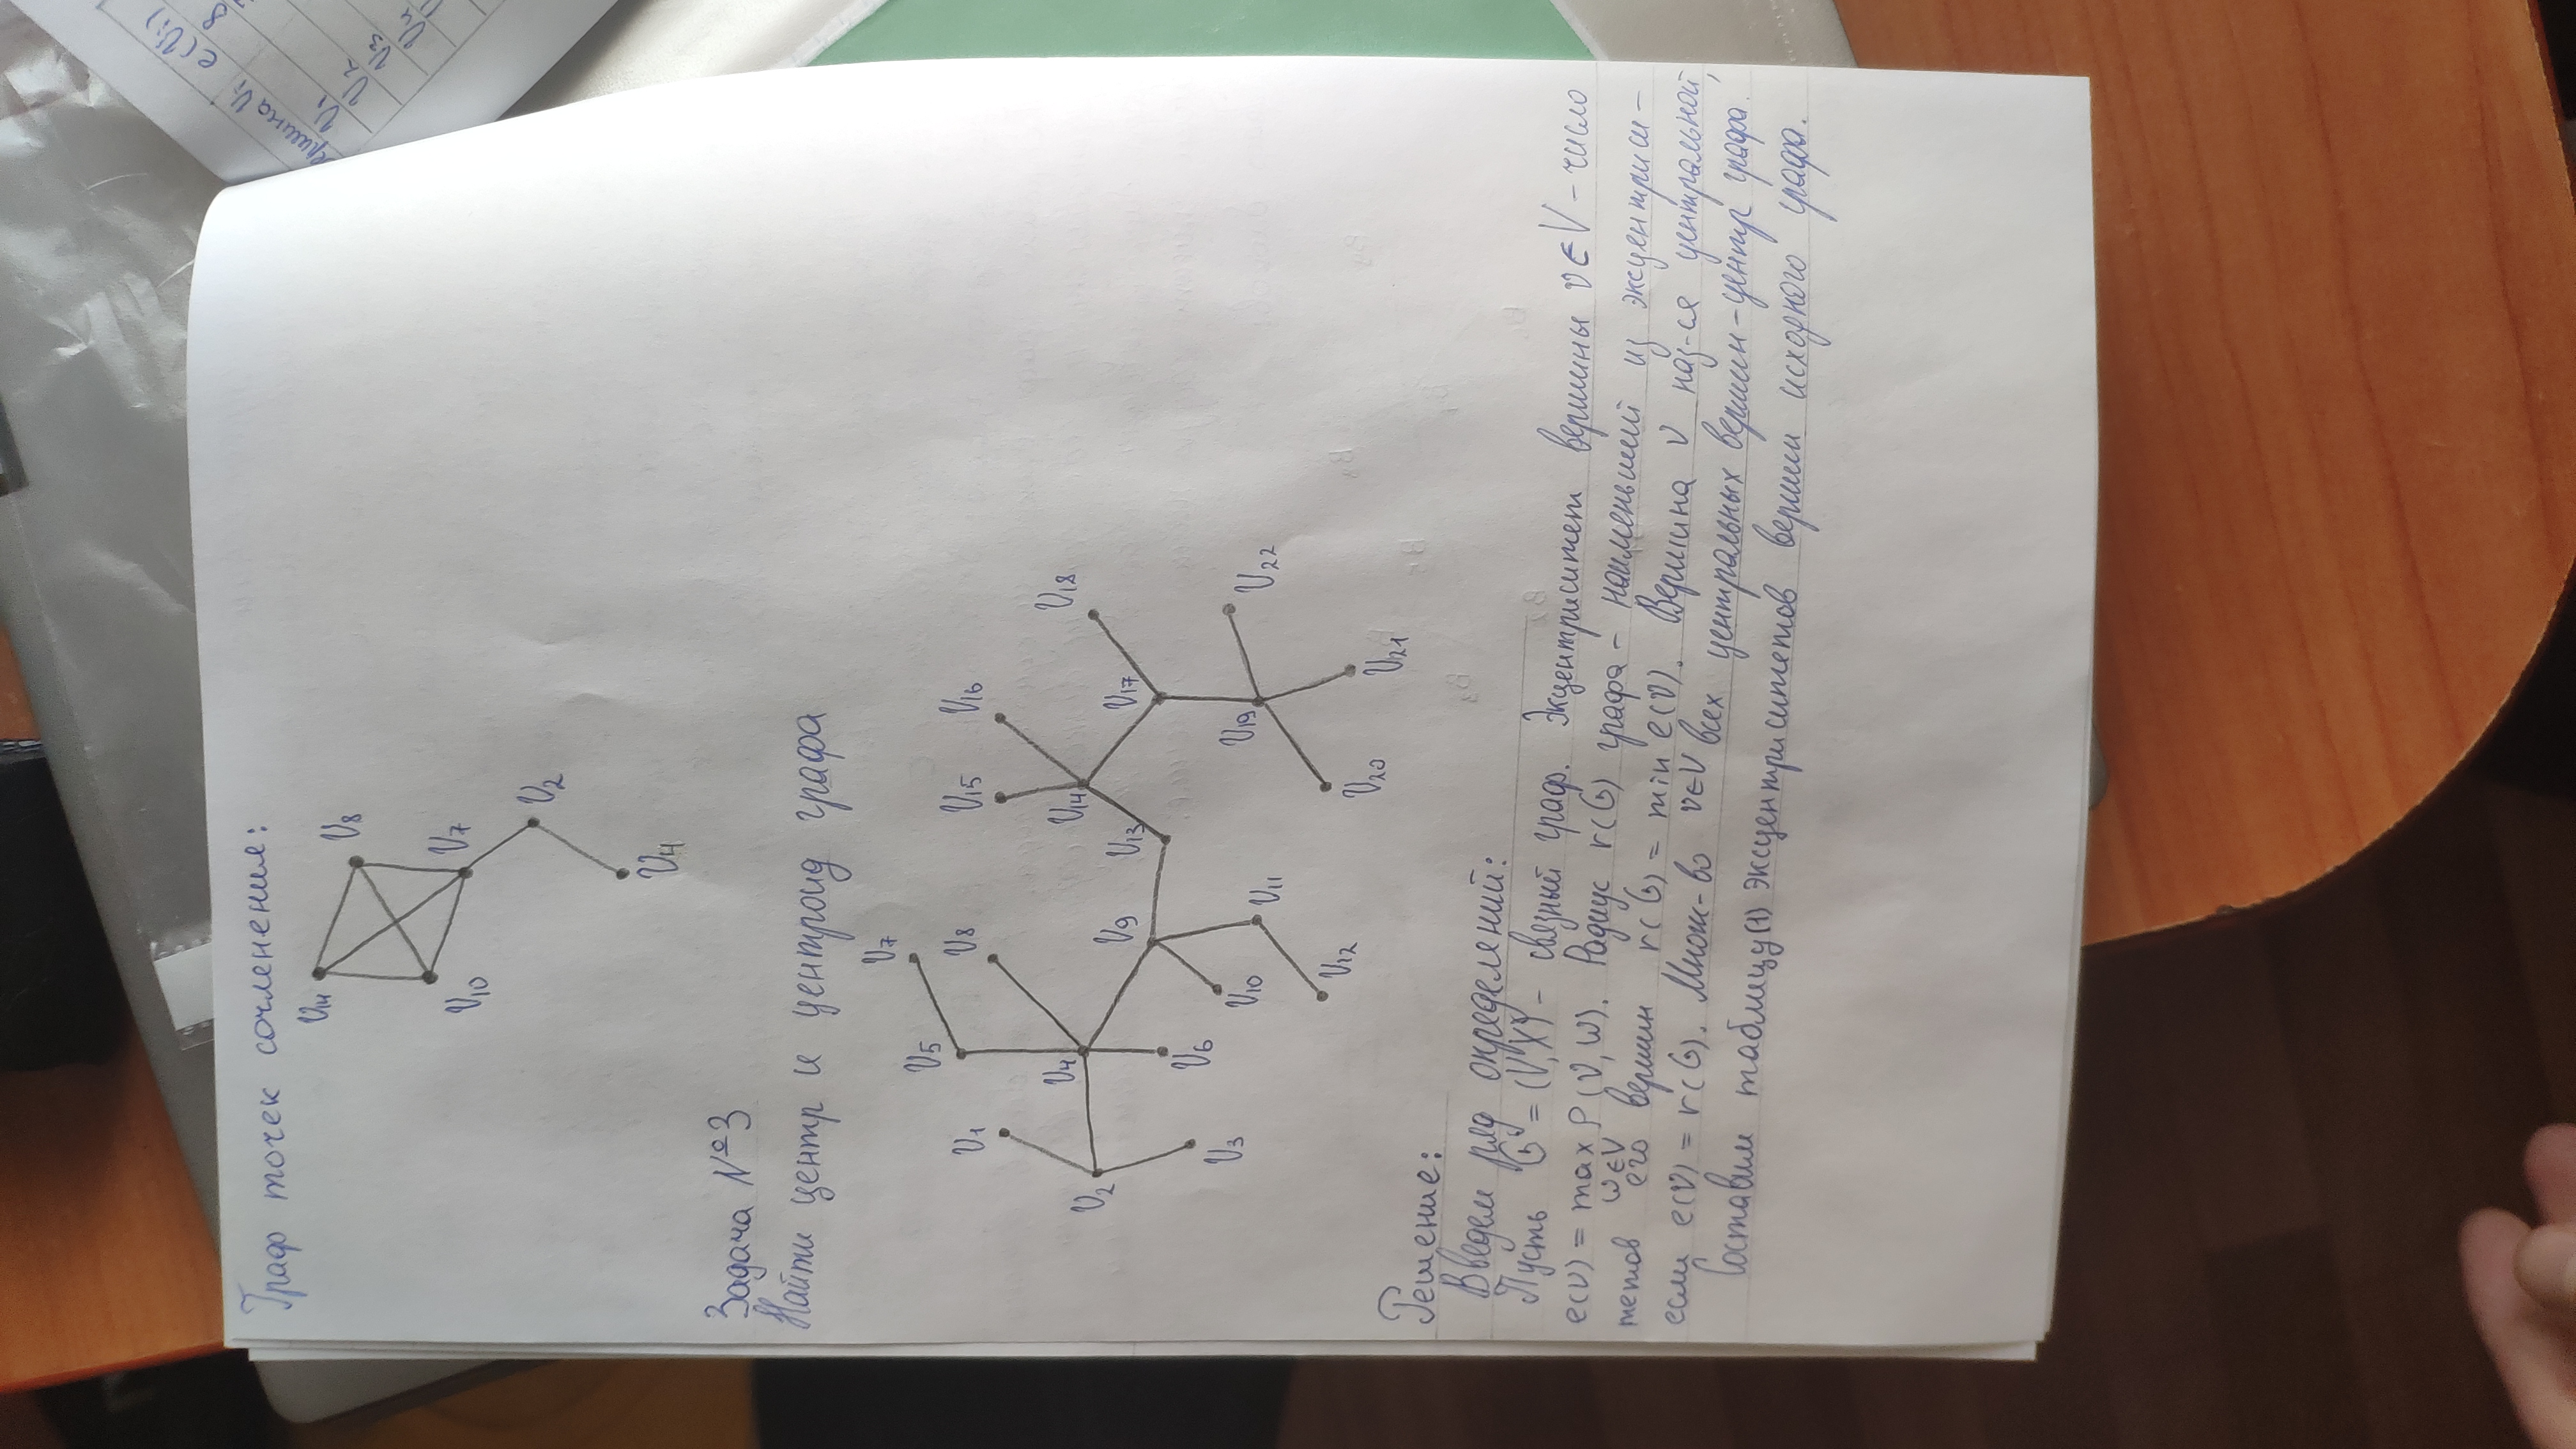 Граф точек сочленение:
V14
V8
V10
V7
V2
V4
Задача №3
Найти центр и центроид графа
V7
V5
V8
V16
V15
V1
V4
V9
V14
V18
V17
V13
V2
V6
V3
V10
V11
V12
V19
V22
V20
V21
Решение:
Введем ряд определений:
Пусть G = (V,X) - связный граф. Эксцентриситет вершины v ∈ V - число
e(v) = max ρ(v,w). Радиус r(G) графа - наименьший из эксцентриси-
w∈V
тетов его вершин r(G) = min e(v). Вершина v наз-ся центральной,
v∈V
если e(v) = r(G). Множ-во всех центральных вершин - центр графа.
Составим таблицу(1) эксцентриситетов вершин исходного графа.
вершина Vi
e(Vi)
V1
8
V2
V3
V4